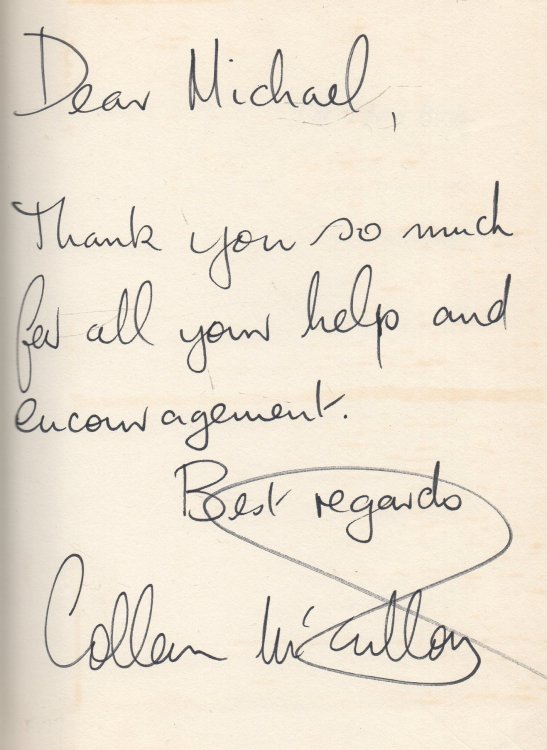 Dear Michael,
Thank you so much
for all your help and
encouragement.
Best regards
Colleen McCullough